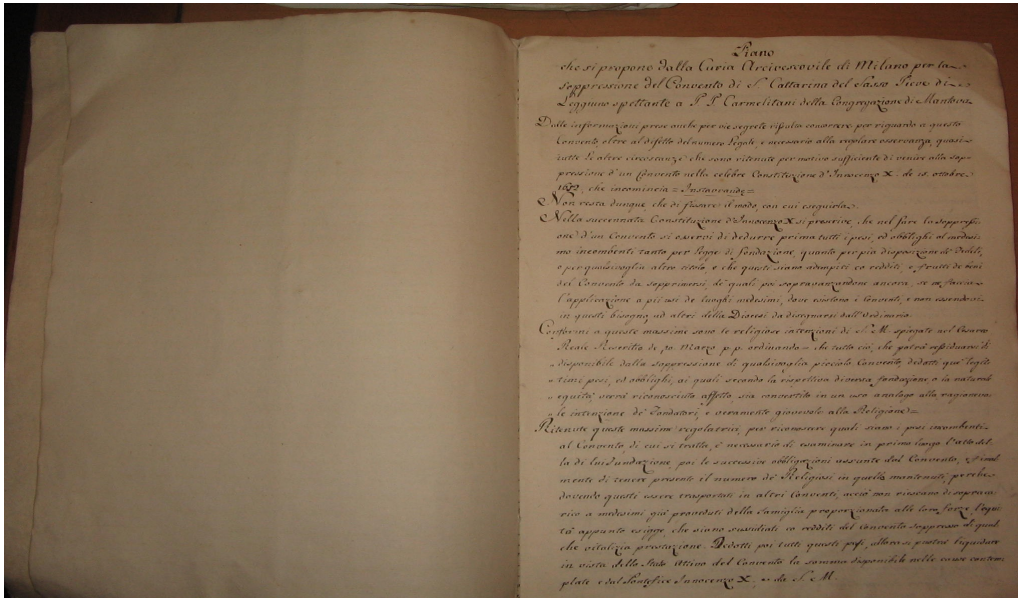 Piano
che si propone dalla Curia Arcivescovile di Milano per la
soppressione del Convento di S. Cattarina del Sasso Pieve di
Leggiuno spettante a P P Carmelitani della Congregazione di Mantova
Dalle informazioni prese anche per vie segrete risulta concorrere per riguardo a questo
Convento, oltre al difetto del numero legale, e necessario alla regolare osservanza, quasi
tutte le altre circostanze che sono ritenute per motivo sufficiente di venire alla sop=
pressione d'un Convento nella celebre Constituzione d'Innocenzo X. de 15. ottobre
1652, che incomincia = Instaurandæ =
Non resta dunque che di fissare il modo, con cui eseguirla.
Nella succennata Constituzione d'Innocenzo X si prescrive, che nel fare la soppressi=
one d'un Convento si osservi di dedurre prima tutti i pesi, ed obblighi al medesi
mo incombenti tanto per legge di fondazione, quanto per pia disposizione de Fedeli,
o per qualsivoglia altro titolo, e che questi siano adempiti co redditi, e frutti de beni
del Convento da sopprimersi, di quali poi sopravanzandone ancora, se ne faccia
l'applicazione a pii usi de luoghi medesimi, dove esistono i Conventi, e non essendovi
in questi bisogno, ad altri della Diocesi da disegnarsi dall'Ordinario.
Conformi a queste massime sono le religiose intenzioni di S. M. spiegate nel Cesareo
Reale Rescritto de 20 Marzo p. p. ordinando = che tutto ciò, che potrà residuarsi di
disponibile dalla soppressione di qualsivoglia picciolo Convento, dedotti que' legit
timi pesi, ed obblighi, ai quali secondo la rispettiva diversa fondazione, o la natural
equità verrà riconosciuto affetto, sia convertito in un uso analogo alla ragionevo
le intenzione de' Fondatori, e veramente giovevole alla Religione =
Ritenute queste massime regolatrici, per riconoscere quali siano i pesi incombenti
al Convento, di cui si tratta, è necessario di esaminare in primo luogo l'atto del
la di lui fundazione, poi le successive obbligazioni assunte dal Convento, e final
mente di tenere presente il numero de' Religiosi in quello mantenuti, perchè
dovendo questi essere trasportati in altri Conventi, acciò non riescano di sopraca
rico a medesimi già proveduti della Famiglia proporzionata alle loro forze, l'equi
tà appunto esigge, che siano sussidiati co redditi del Convento soppresso di qual
che vitalizia prestazione. Dedotti poi tutti questi pesi, allora si potrà liquidare
in vista dello Stato Attivo del Convento la somma disponibile nelle cause contem
plate e dal Pontefice Innocenzo X, e da S. M.